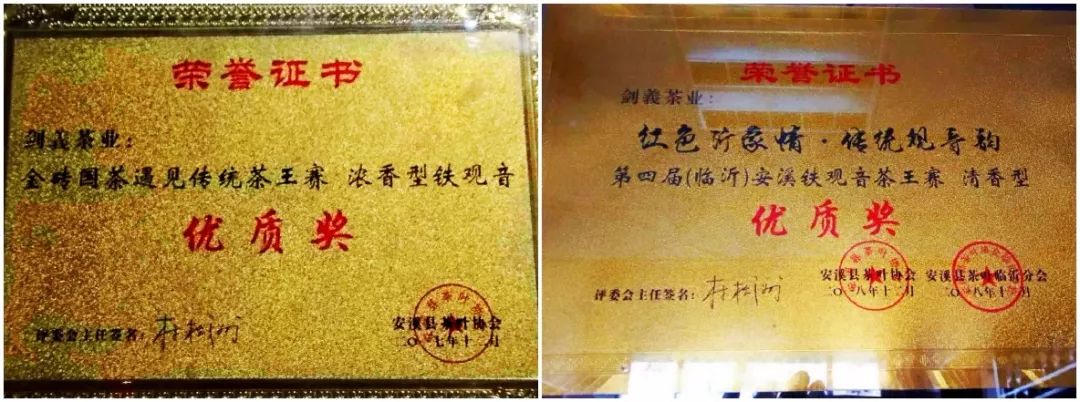 荣誉证书
剑義茶业：
金砖国茶遇见传统茶王赛 浓香型铁观音
优质奖
评委会主任签名：
安溪县茶叶协会
二〇一七年十二月
荣誉证书
剑義茶业：
红色沂蒙情·传统观音韵
第四届(临沂)安溪铁观音茶王赛 清香型
优质奖
安溪县茶叶协会 安溪县茶叶临沂分会
二〇一八年十二月 二〇一八年十二月
评委会主任签名：